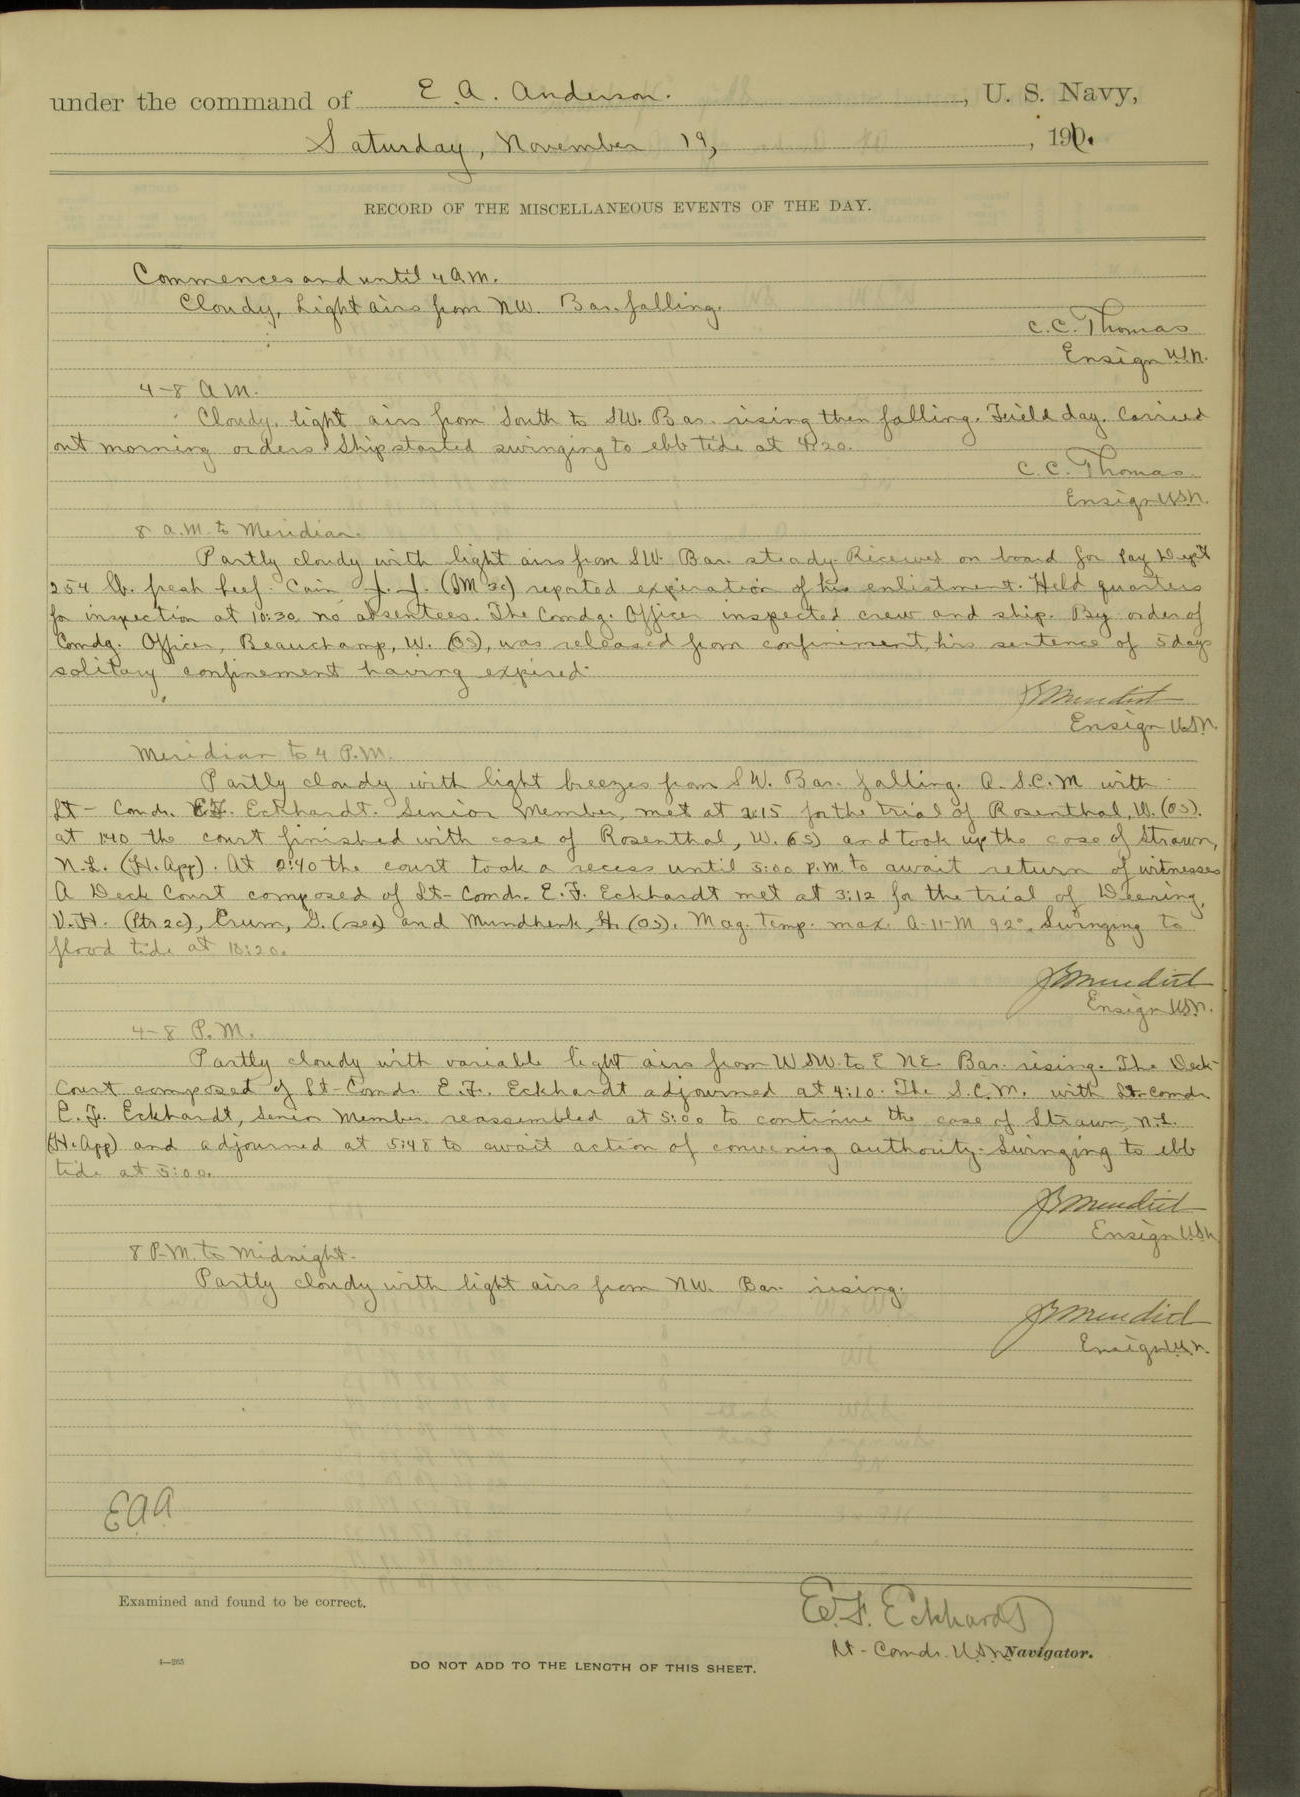 under the command of E. A. Anderson. , U. S. Navy,
Saturday, November 19, , 190.
RECORD OF THE MISCELLANEOUS EVENTS OF THE DAY.
Commences and until 4 a.m.
Cloudy, Light airs from NW. Bar. falling.
C. C. Thomas
Ensign U.S.N.
4-8 A.M.
Cloudy, light airs from South to SW. Bar. rising then falling. Field day. Carried
out morning orders. Ship started swinging to ebb tide at 4:20.
C. C. Thomas
Ensign U.S.N.
8 a.m. to Meridian.
Partly cloudy with light airs from SW. Bar. steady. Received on board for Pay Dep't
254 lb. fresh beef. Cain J. J. (OM 3c) reported expiration of his enlistment. Held quarters
for inspection at 10:30 no absentees. The Comdg. Officer inspected crew and ship. By order of
Comdg. Officer, Beauchamp, W. (OS), was released from confinement, his sentence of 5 days
solitary confinement having expired.
Ensign U.S.N.
Meridian to 4 P.M.
Partly cloudy with light breezes from SW. Bar. falling. A S.C.M with
Lt-Comdr. E.F. Eckhardt. Senior Member, met at for the trial of Rosenthal, W. (OS).
at 1:40 the court finished with case of Rosenthal, W. (OS) and took up the case of Strawn,
N.L. (H. App). At 2:40 the court took a recess until 5:00 P.M. to await return of witnesses
A Deck Court composed of Lt-Comdr. E. F. Eckhardt met at 3:12 for the trial of Deering,
V.H. (Ptr 2c), Crum, G. (sea) and Mundhenk, H. (OS). Mag. temp. max. A-11-M 92°. Swinging to
flood tide at 10:20.
Ensign U.S.N.
4-8 P.M.
Partly cloudy with variable light airs from WSW. to ENE. Bar. rising. The Deck
Court composed of Lt-Comdr. E.F. Eckhardt adjourned at 4:10. The S.C.M. with Lt-Comdr
E. F. Eckhardt, Senior Member reassembled at 5:00 to continue the case of Strawn, N.L.
(H. App) and adjourned at 5:48 to await action of convening authority. Swinging to ebb
tide at 5:00.
Ensign U.S.N.
8 P.M. to Midnight.
Partly cloudy with light airs from NW. Bar. rising.
Ensign U.S.N.
EAA
Examined and found to be correct.
E. F. Eckhardt
Lt-Comdr. U.S.N. Navigator.
4—265
DO NOT ADD TO THE LENGTH OF THIS SHEET.